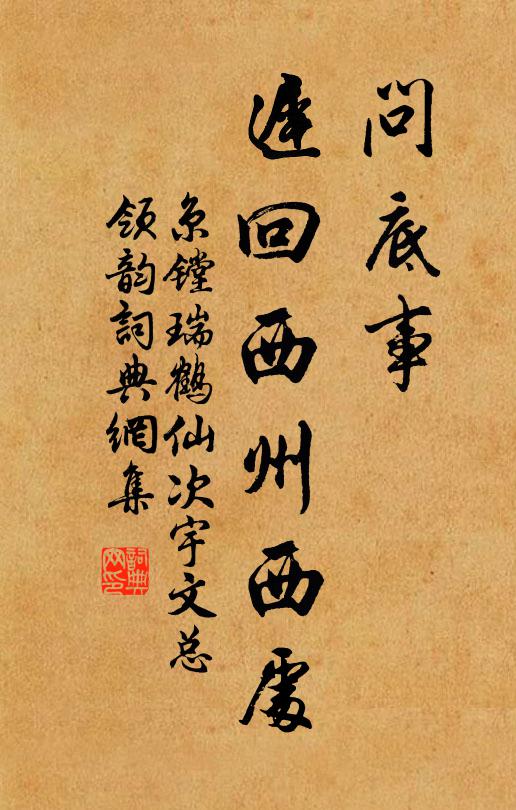 問底事
遲回西州西處
京鏜瑞鶴仙次宇文总
領韵詞典網集
詞典
网印